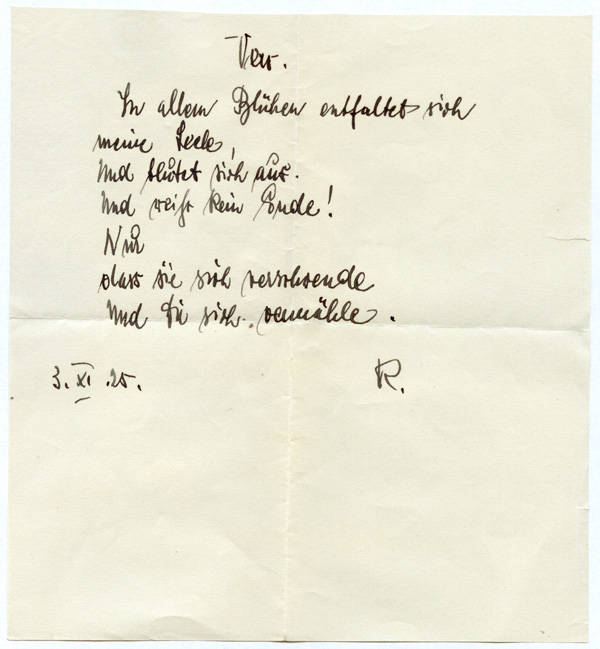 Vers.
In allem Blühen entfaltet sich
meine Seele,
Und blutet sich aus.
Und weiss kein Ende!
Nur
dass sie sich verschwende
Und Dir sich vermähle.
3. XI. 25.
R.